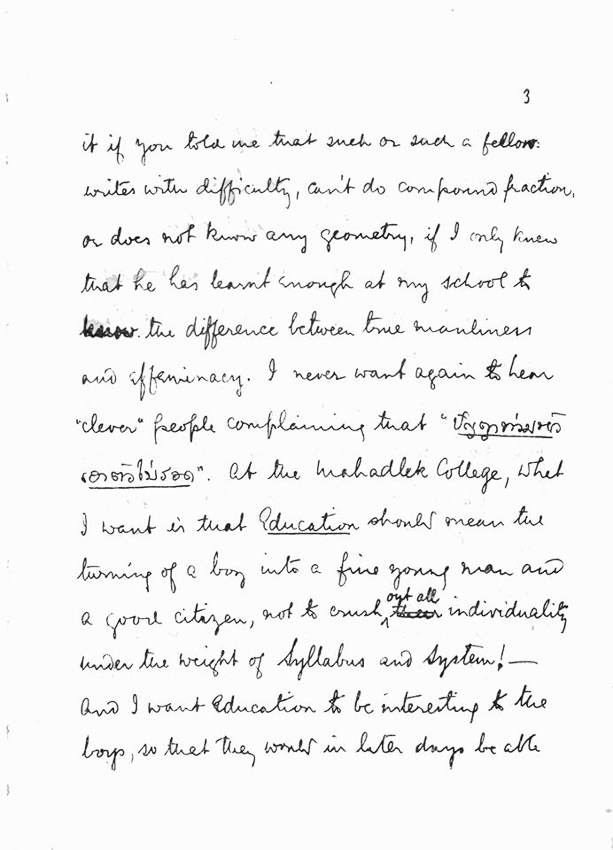 3
it if you told me that such or such a fellow
writes with difficulty, can't do compound fraction,
or does not know any geometry, if I only knew
that he has learnt enough at my school to
know the difference between true manliness
and effeminacy. I never want again to hear
"clever" people complaining that "
เอาตัวไม่รอด". At the Mahadlek College, what
I want is that Education should mean the
turning of a boy into a fine young man and
a good citizen, not to crush out all their individuality
under the weight of Syllabus and System! —
And I want Education to be interesting to the
boys, so that they would in later days be able